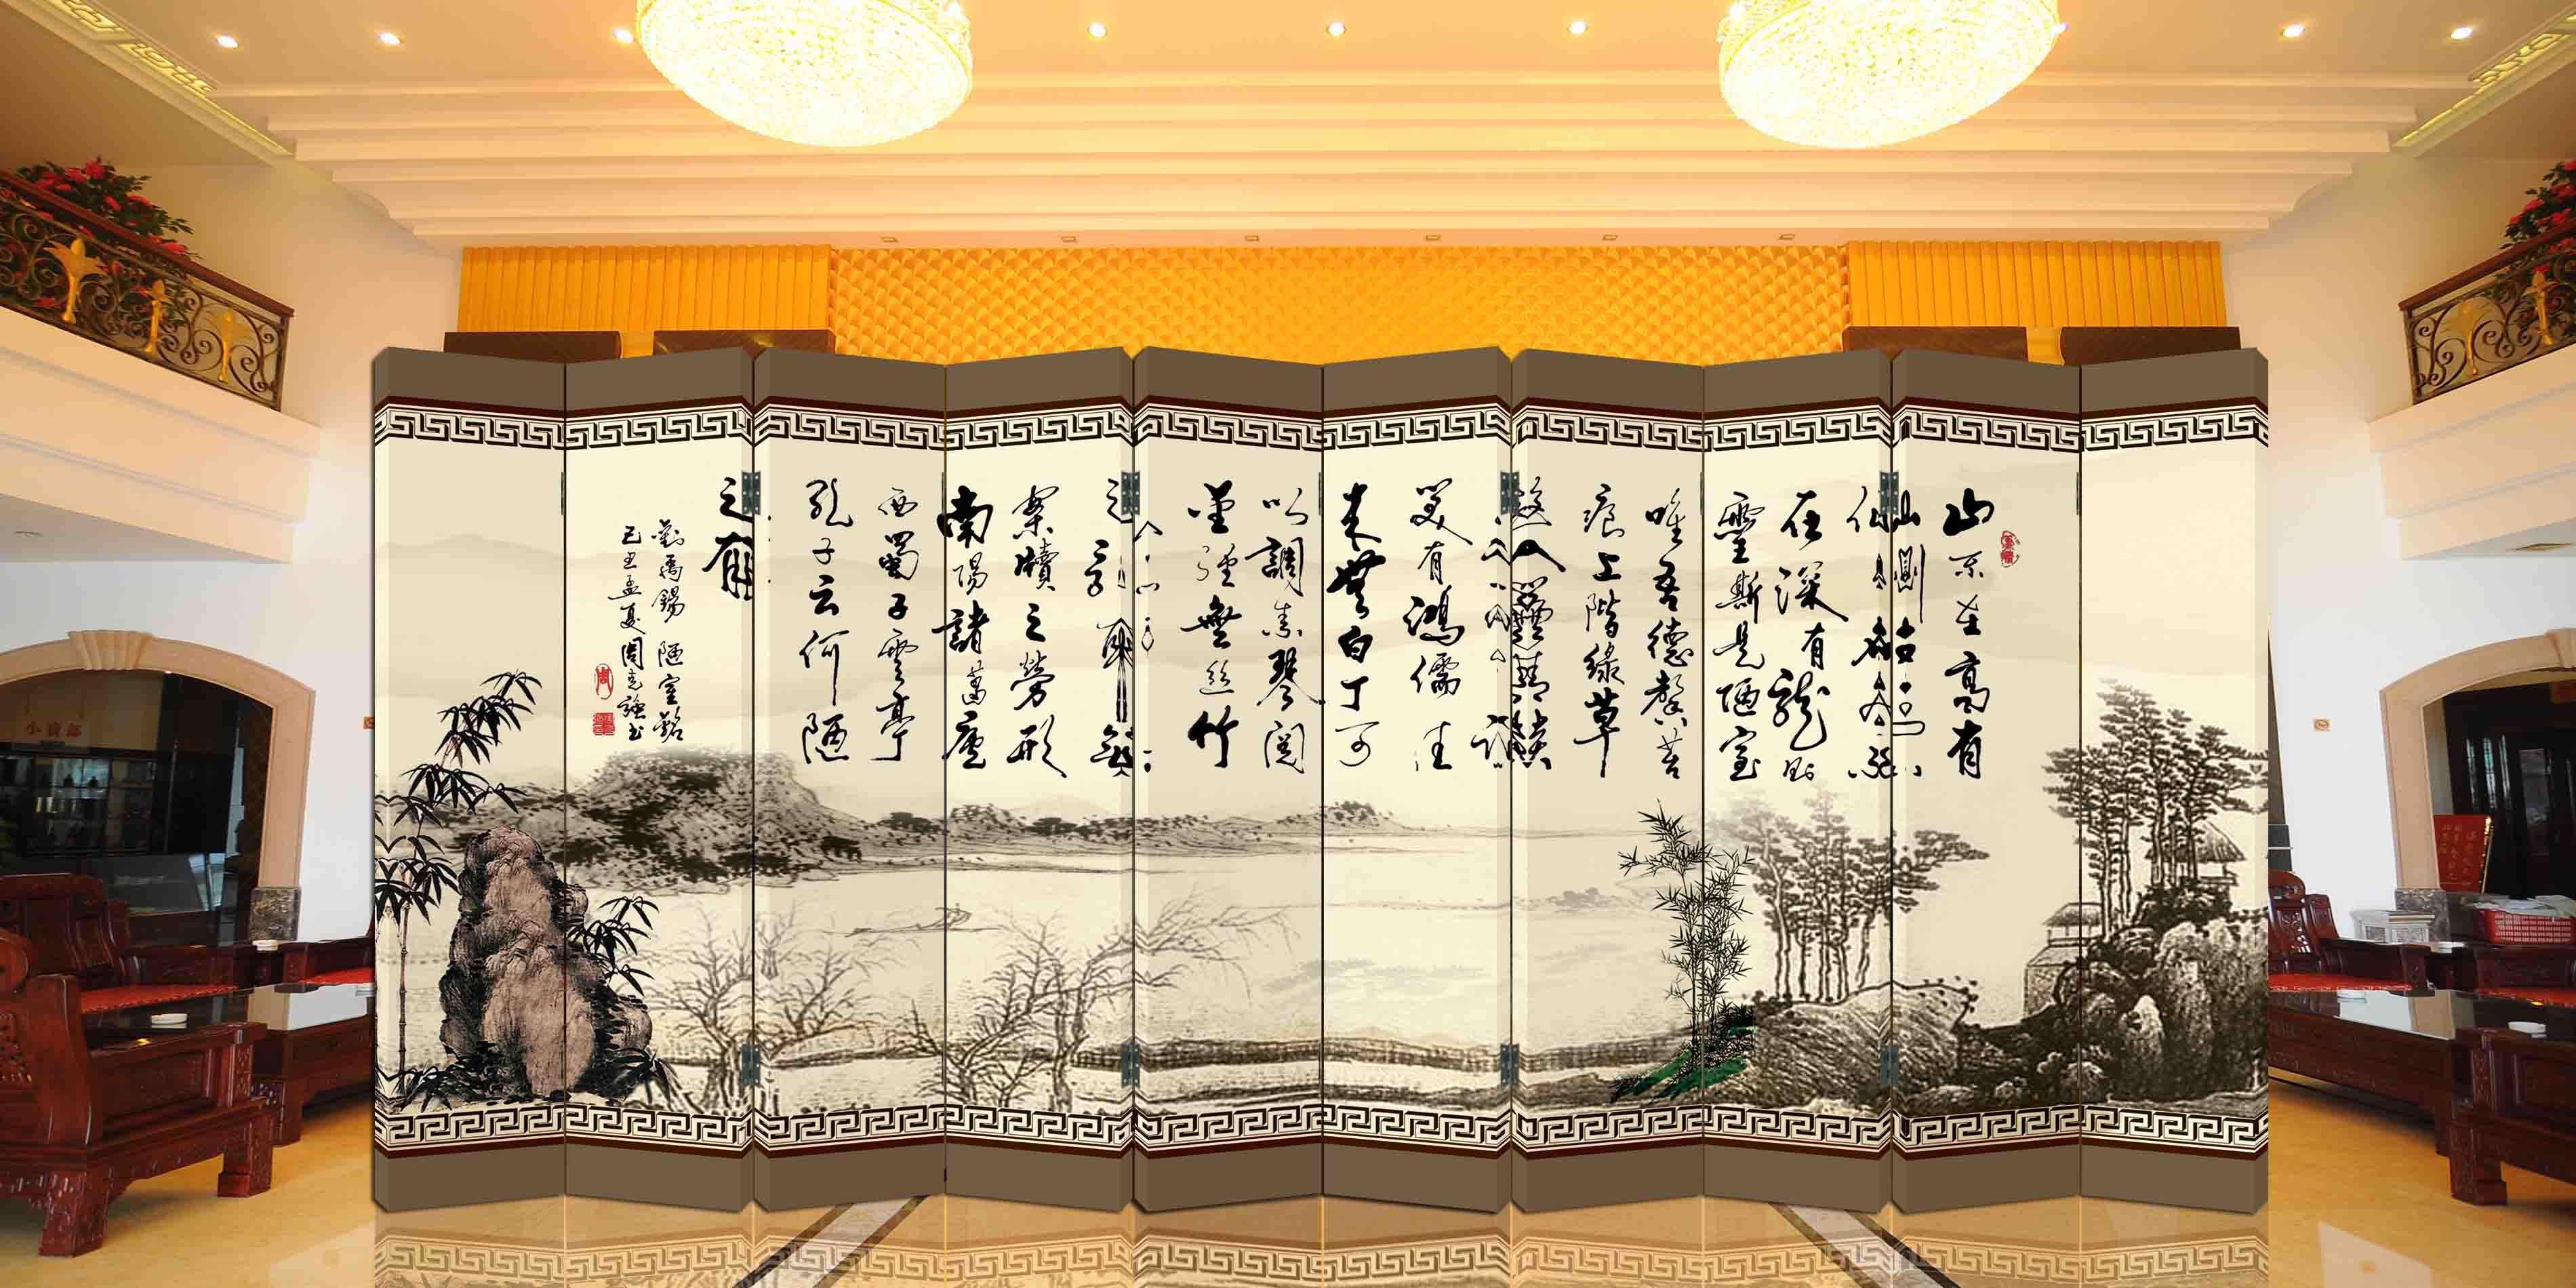 山不在高有
仙
在深有龍則
靈斯是陋室
唯吾德馨苔
痕上階綠草
入簾青談
笑有鴻儒往
來無白丁可
以調素琴閱
金經無絲竹
之亂耳無
案牘之勞形
南陽諸葛廬
西蜀子雲亭
孔子云何陋
之有
劉禹錫 陋室銘
己丑孟夏周克強書
周
小賣部